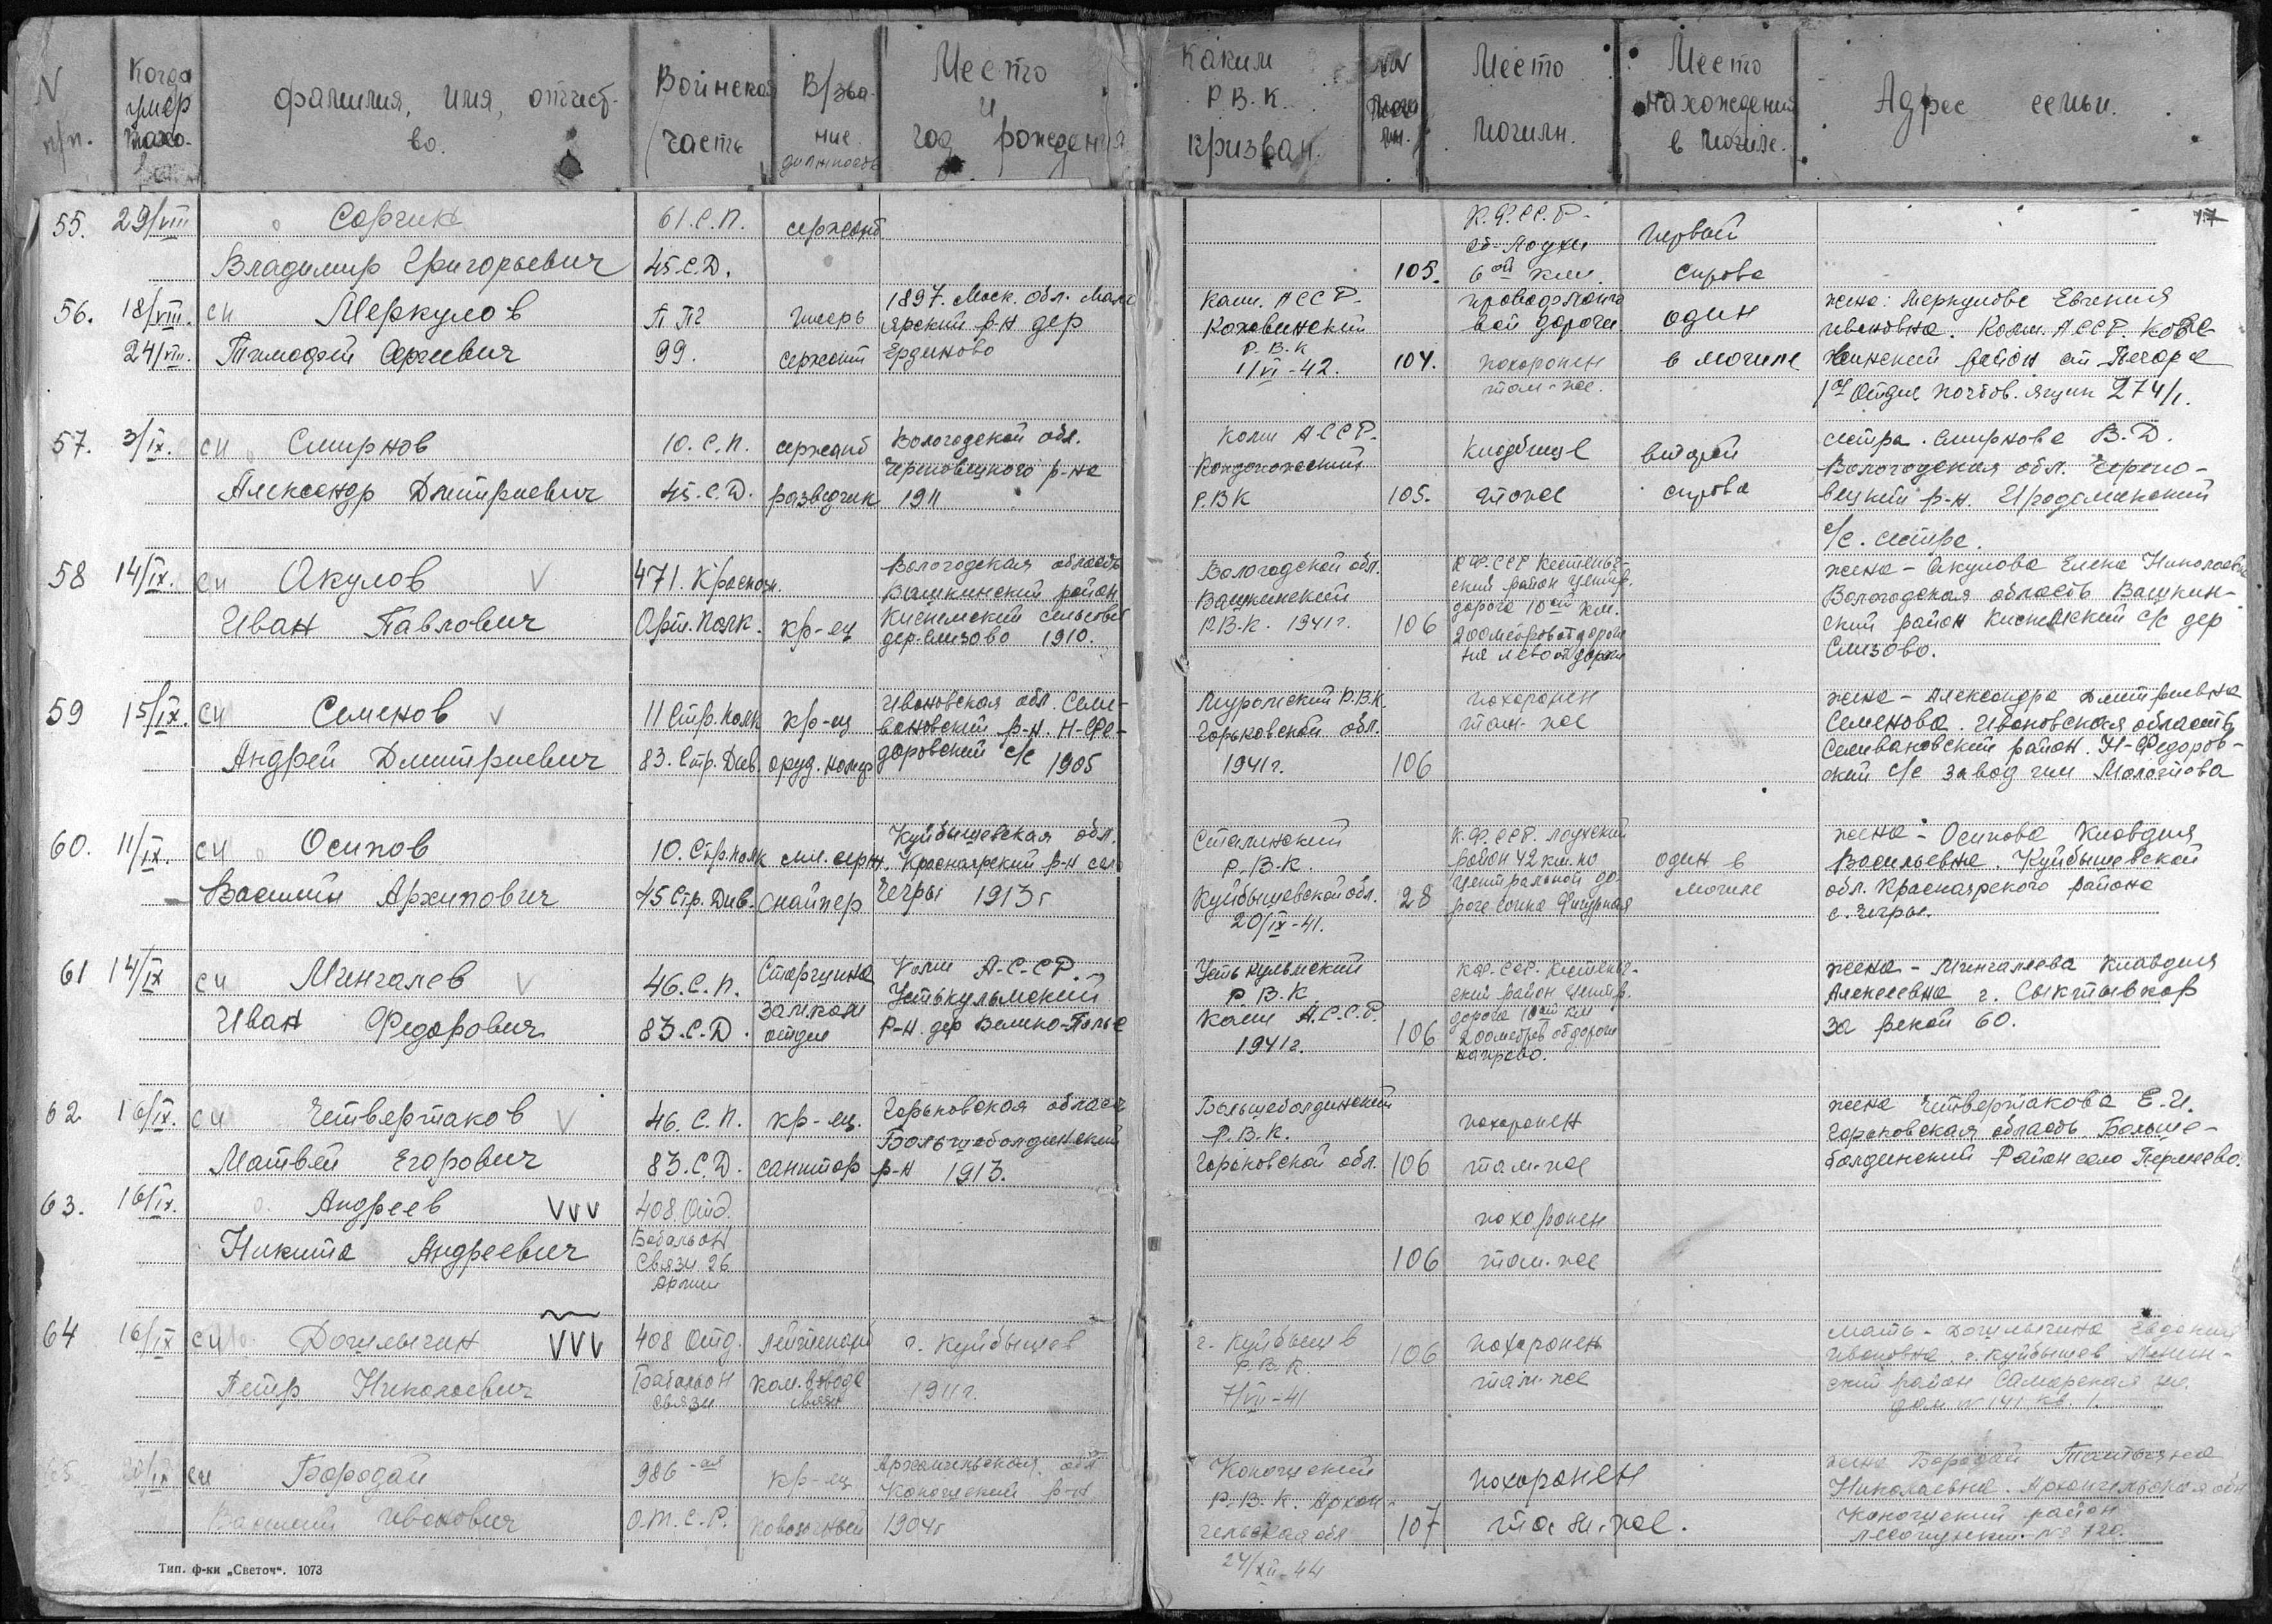 N п/п. Когда умер похо- Фамилия, имя, отчест- во. Воинская часть В/зва- ние должность Место и год рождения Каким Р.В.К. призван. NN Моги лы. Место могилы. Место нахождения в могиле. Адрес семьи.
17
55. 29/VIII Сорчик 61.С.П. сержант К.Ф.ССР. первый
Владимир Григорьевич 45.С.Д. 105. ст-Лоухи 6ой км. справа
56. 18/VIII. 24/VIII. си Меркулов П ПГ 99. писарь сержант
Тимофей Сергеевич
1897. Моск. обл. Мало
ярский р-н дер
Ердиново
Коми. АССР.
Кожвинский
Р.В.К
1/VI-42.
104.
вой дороги
похоронен
там-же.
один
в могиле
жена: Меркулова Евгения
Ивановна. Коми. АССР. Кож-
винский район ст Печора
1ое Отдел почтов. ящик 274/1.
57. 3/IX. си Смирнов 10.С.П. сержант
Александр Дмитриевич 45.С.Д. разведчик
Вологодской обл.
Череповецкого р-на
1911
Коми АССР.
Р.ВК
105.
Кладбище
тоже
второй
справа
сестра. Смирнова В.Д.
Вологодская обл. Черепо-
вецкий р-н.
с/с. сестра.
58 14/IX. си Акулов V 471. Краснозн.
Иван Павлович Арт. Полк. кр-ец
Вологодская область
Вашкинский район
Киснемский сельсовет
дер. Елизово 1910.
Вологодской обл.
Вашкинский
Р.В.К. 1941г.
106
К.Ф.ССР Кестеньг-
ский район центр.
дорога 10ый км.
200 метров от дороги
на лево от дороги
жена - Акулова Елена Николаевн
Вологодская область Вашкин-
ский район Киснемский с/с дер
Елизово.
59 15/IX. си Семенов V 11 Стр. полк кр-ец
Андрей Дмитриевич 83. Стр. Див. оруд. номер
Ивановская обл. Сели-
вановский р-н. Н-Фе-
доровский с/с 1905
Муромский Р.В.К.
Горьковской обл.
1941г.
106
похоронен
там-же
жена - Александра Дмитриевна
Семенова. Ивановская область
Селивановский район. Н-Федоров-
ский с/с завод им Молотова
60. 11/IX. си Осипов 10. Стр. полк мл. серж.
Василий Архипович 45 Стр. Див. снайпер
Куйбышевская обл.
Красноярский р-н село
1913г
Сталинский
Р.В.К.
Куйбышевской обл.
20/IX-41.
28
К.Ф.ССР. Лоухский
район 42 км. по
центральной до-
роге сопка Фигурная
один в
могиле
жена - Осипова Клавдия
Васильевна. Куйбышевской
обл. Красноярского района
61 14/IX си Мингалев V 46.С.П. Старшина
Иван Федорович 83.С.Д. зам.ком отдел
Коми А.С.СР.
Устькульмский
Р-н. дер Вельно-Полье
Усть кульмский
Р.В.К.
Коми А.С.С.Р.
1941г.
106
К.Ф.ССР. Кестеньг-
ский район центр.
дорога 10ый км
200 метров от дороги
направо.
жена - Мингалеева Клавдия
Алексеевна г. Сыктывкар
За рекой 60.
62 16/IX. си Четвертаков V 46.С.П. кр-ец.
Матвей Егорович 83.С.Д. санитар
Горьковская област
Большеболдинский
р-н 1913.
Большеболдинский
Р.В.К.
Горьковской обл.
106
похоронен
там-же
жена Четвертакова Е.И.
Горьковская область Больше-
болдинский Район село Пермеево.
63. 16/IX. Андреев VVV 408. Отд.
Никита Андреевич Батальон
Связи 26
Армии
106
похоронен
там-же
64 16/IX си Догилычин VVV 408 Отд. Лейтенант г. Куйбышев
Петр Николаевич Батальон связи ком. взвода связи 1911г.
г. Куйбышев
Р.В.К.
7/VII-41
106
похоронен
там-же
Мать - Догилычина Евдокия
Ивановна. г. Куйбышев Ленин-
ский район Самарская ул.
дом № 141 кв. 1.
65 си Бородай 986-ая кр-ец
Василий Иванович О.Т.С.Р. повозочный
Архангельская обл
Коношский р-н
1904г
Коношский
Р.В.К. Архан-
гельская обл
24/XII-44
107
похоронен
там-же.
жена Бородай Татьяна
Николаевна. Архангельская обл
Коношский район
Лесопункт № 120.
Тип. ф-ки „Светоч". 1073